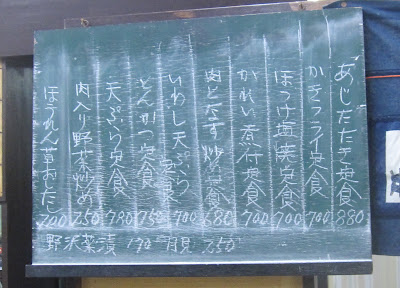 あじたたき定食 880
かきフライ定食 700
ほっけ塩焼定食 700
かれい煮付定食 700
肉となす炒め定食 680
いわし天ぷら定食 700
とんかつ定食 750
天ぷら定食 780
肉入り野菜炒め 750
ほうれん草おとし 700
野沢菜漬 190 月見 250